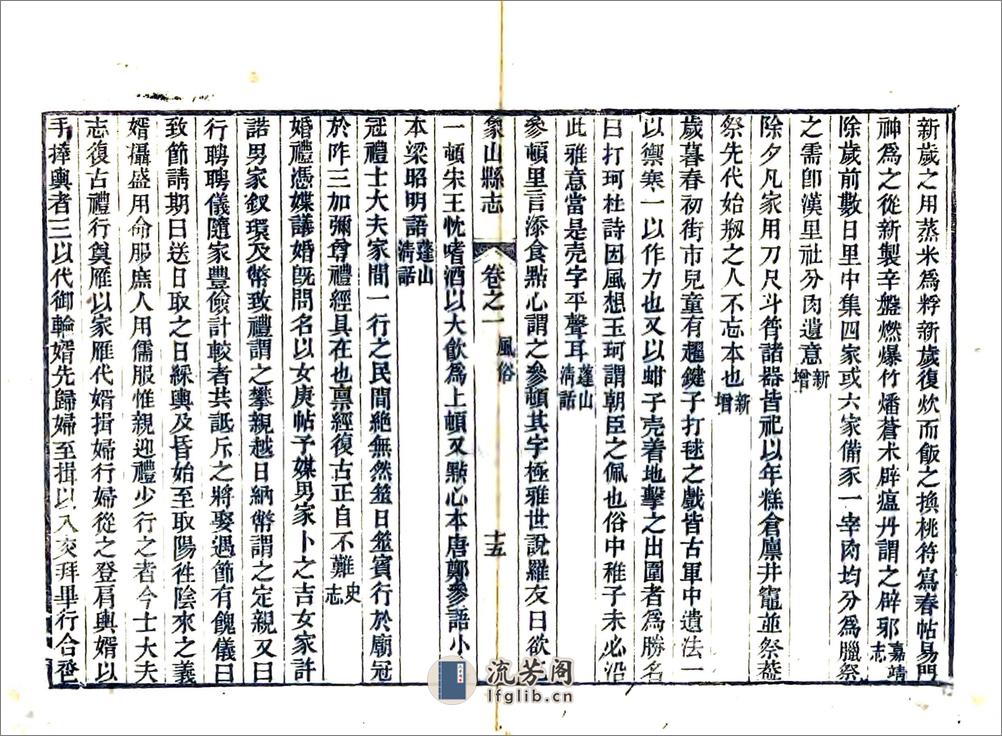 新歲之用蒸米為粰新歲復炊而飯之換桃符寫春帖易門
神為之從新製辛盤燃爆竹燔蒼朮辟瘟丹謂之辟邪嘉靖志
除歲前數日里中集四家或六家備豕一宰肉均分為臘祭
之需卽漢里社分肉遺意新增
除夕凡家用刀尺斗筲諸器皆祀以年糕倉廩井竈並祭葢
祭先代始剏之人不忘本也新增
歲暮春初街市兒童有趯鍵子打毬之戲皆古軍中遺法一
以禦寒一以作力也又以蚶子壳着地擊之出圍者為勝名
曰打珂杜詩因風想玉珂謂朝臣之佩也俗中稚子未必沿
此雅意當是壳字平聲耳蓬山清話
參頓里言添食點心謂之參頓其字極雅世說羅友曰欲
一頓朱王忱嗜酒以大飲為上頓又點心本唐鄭參語小
本梁昭明語蓬山清話
冠禮士大夫家間一行之民間絶無然筮日筮賓行於廟冠
於阼三加彌尊禮經具在也禀經復古正自不難史志
婚禮憑媒議婚旣問名以女庚帖予媒男家卜之吉女家許
諾男家釵環及幣致禮謂之攀親越日納幣謂之定親又曰
行聘聘儀隨家豐儉計較者共詆斥之將娶遇節有餽儀曰
致節請期曰送日取之日綵輿及昏始至取陽徃陰來之義
婿攝盛用命服庶人用儒服惟親迎禮少行之者今士大夫
志復古禮行奠雁以家雁代婿揖婦行婦從之登肩輿婿以
手捧輿者三以代御輪婿先歸婦至揖以入交拜畢行合卺
象山縣志
卷之一 風俗
十五
流芳阁
lfglib.cn